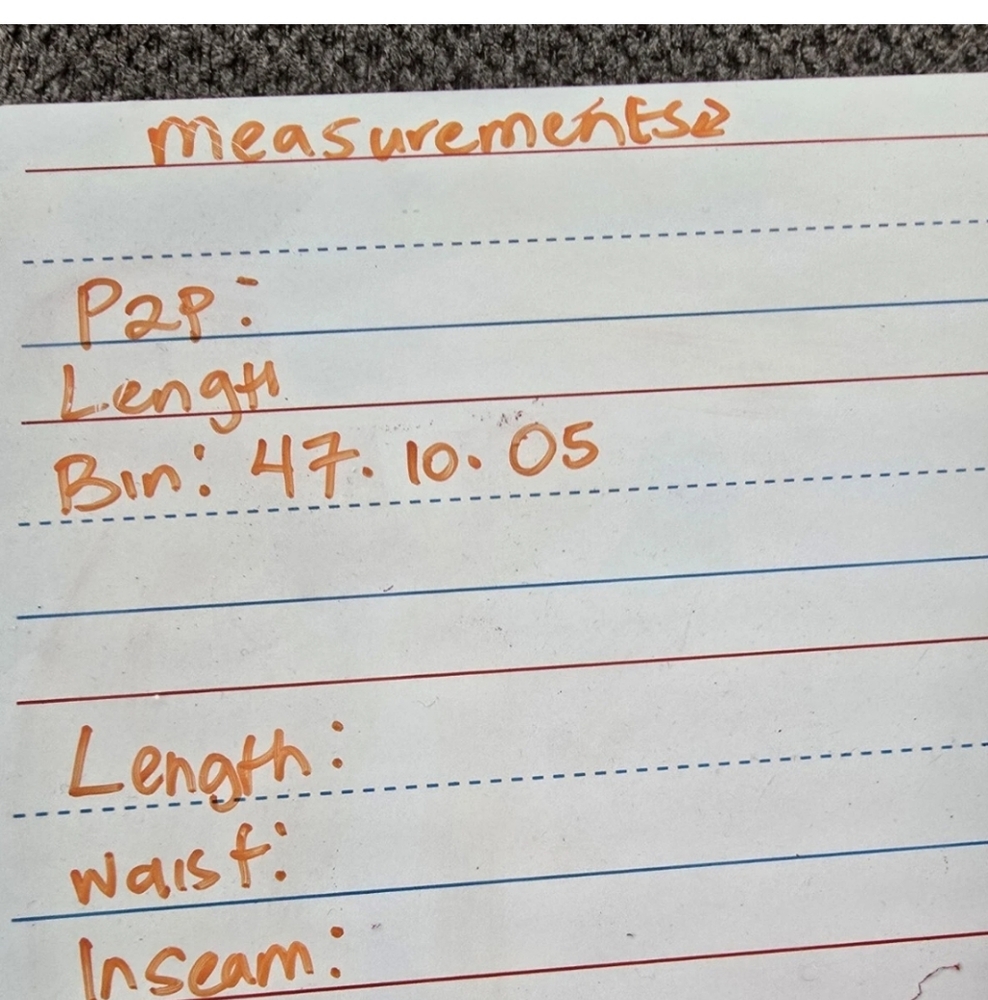 measurements
P2P:
Length
Bin: 47.10.05
Length:
waist:
Inseam: